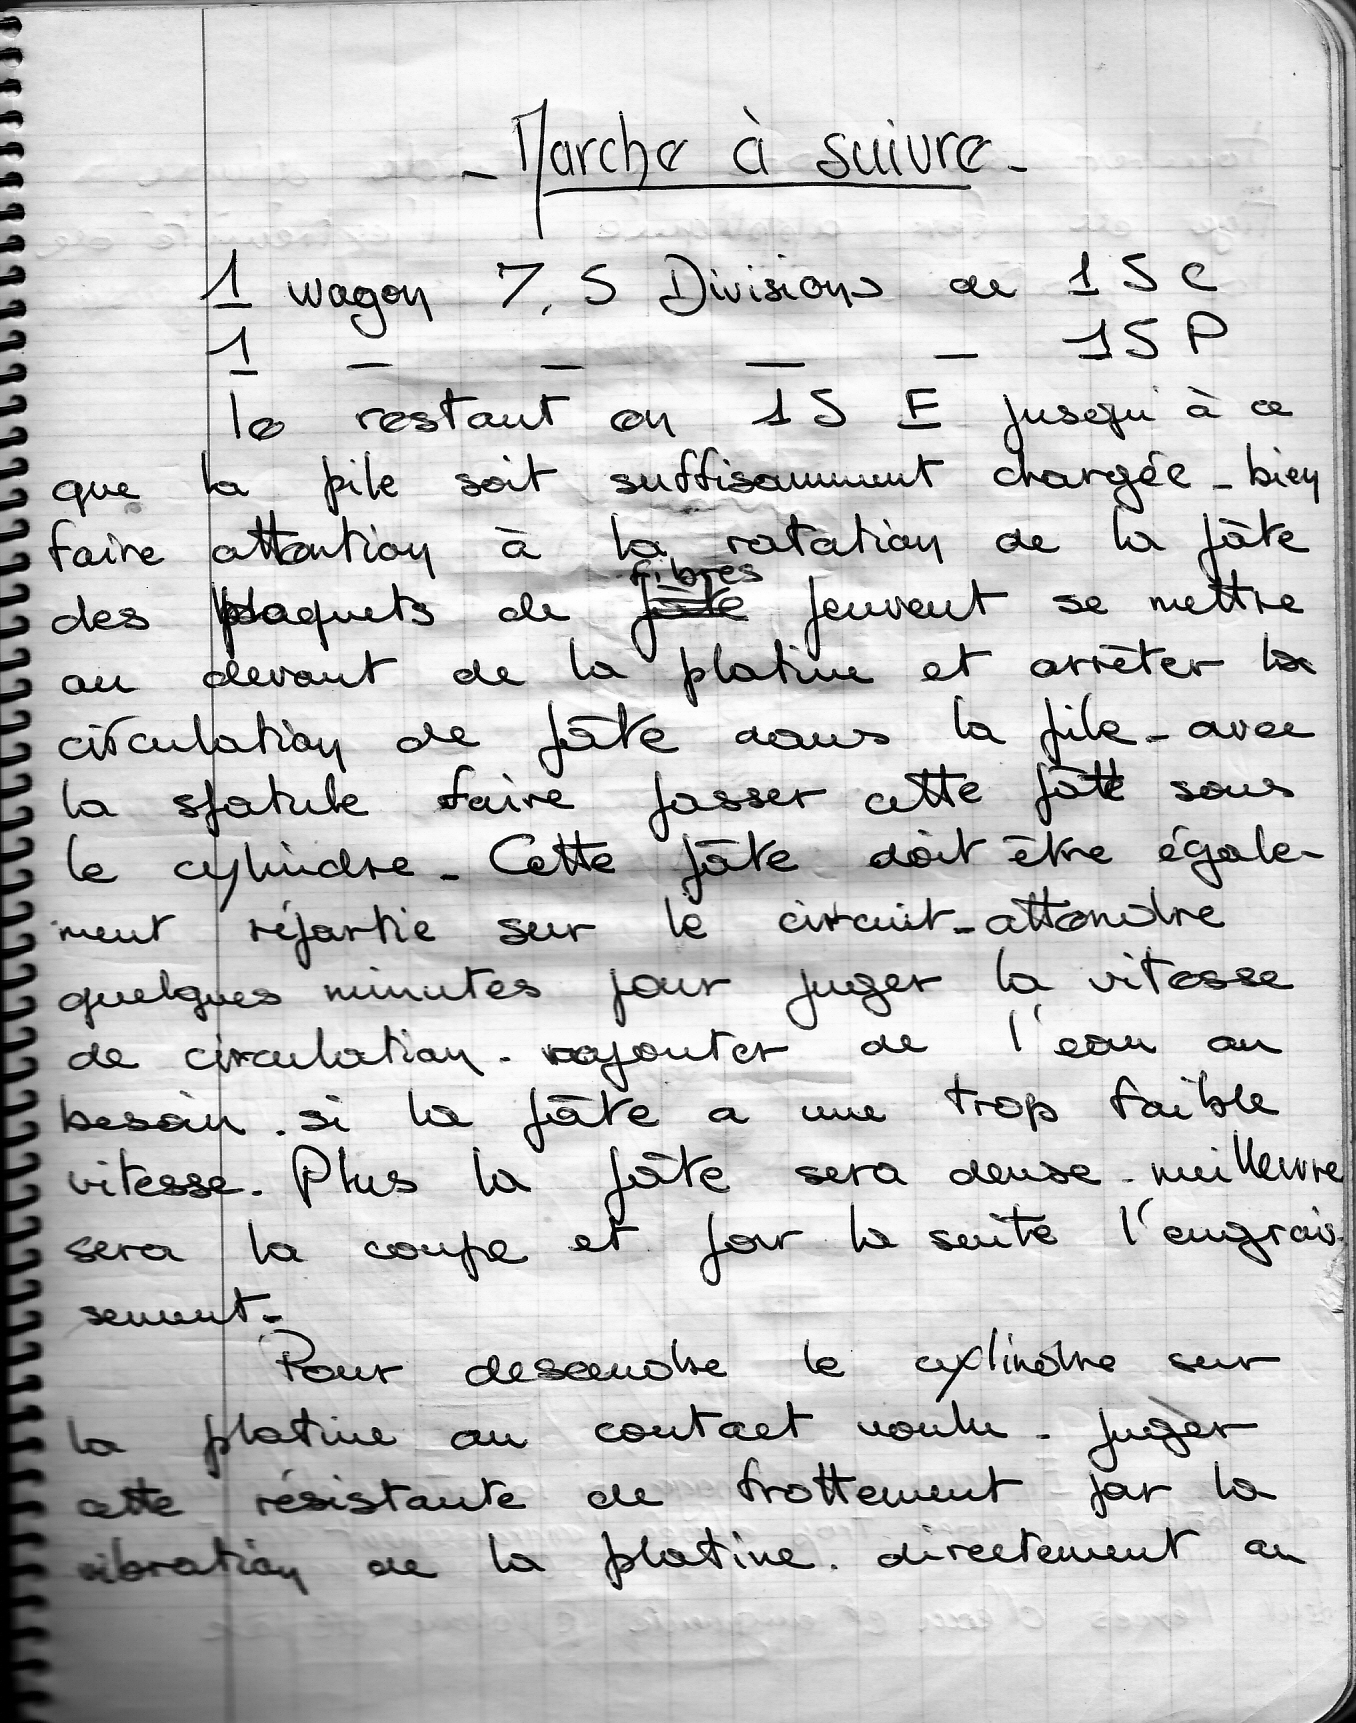 - Marche à suivre -
1 wagon 7,5 Divisions de 15 C
1 _ _ _ _ 15 P
le restant en 15 E jusqu'à ce
que la pile soit suffisamment chargée - bien
faire attention à la rotation de la pâte
fibres
des paquets de pâte peuvent se mettre
au devant de la platine et arrêter la
circulation de pâte dans la pile - avec
la spatule faire passer cette pâte sous
le cylindre - Cette pâte doit être égale-
ment répartie sur le circuit - attendre
quelques minutes pour juger la vitesse
de circulation - rajouter de l'eau au
besoin . si la pâte a une trop faible
vitesse . Plus la pâte sera dense - meilleure
sera la coupe et par la suite l'engrais-
sement -
Pour descendre le cylindre sur
la platine au contact voulu - juger
cette résistante de frottement par la
vibration de la platine . directement au